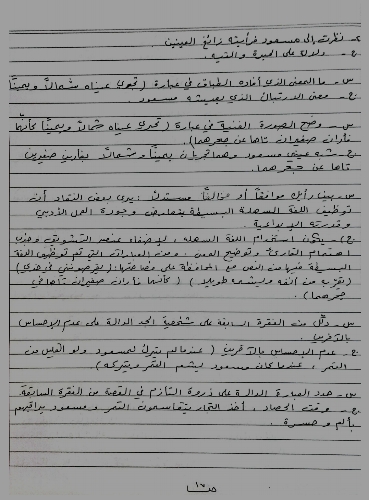 ٢- نظرت إلى مسعود فرأيته زائغ العينين.
ج- دلالة على الحيرة والتيه.
س- ما المعنى الذي أفاده الطباق في عبارة (تجري عيناه شمالًا ويمينًا)
ج- معنى الارتباك الذي يعيشه مسعود
س- وضح الصورة الفنية في عبارة (تجري عيناه شمالًا ويمينًا كأنهما
فأران صغيران تاها عن جحرهما).
ج- شبه عيني مسعود وهما تجريان يمينًا وشمالًا بفأرين صغيرين
تاها عن جحرهما.
س- بين رأيك موافقًا أو مخالفًا مستدلًا: يرى بعض النقاد أن
توظيف اللغة السهلة البسيطة يتعارض وجودة العمل الأدبي
وقدرته الإبداعية.
ج- يكون استخدام اللغة السهلة، لإضفاء عنصر التشويق وجذب
اهتمام القارئ وتوضيح المعنى، ومن العبارات التي تم توظيف اللغة
البسيطة فيها من النص مع المحافظة على فصاحتها: (
(يقرب من أنفه ويشمه طويلا) (كأنهما فأران صغيران تاها في
جحرهما).
س- دلل من الفقرة السابقة على شخصية الجد الدالة على عدم الإحساس
بالآخرين.
ج- عدم الإحساس بالآخرين (عندما لم يترك لمسعود ولو القليل من
التمر، عندما كان مسعود ليشم التمر ويتركه).
س- حدد العبارة الدالة على ذروة التأزم في القصة من الفقرة السابقة.
ج- وقت الحصاد، أخذ التجار يتقاسمون التمر ومسعود يراقبهم
بألم وحسرة.
ص١٧